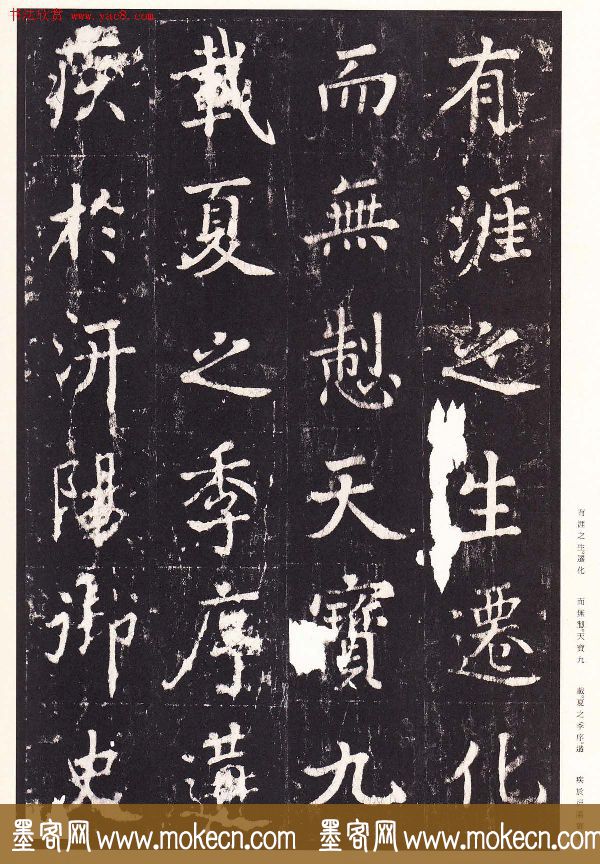 书法欣赏 www.yac8.com
有涯之生遷化
而無制天寶九
載夏之季序遘
疾於汧陽御史
有涯之生遷化 而無制天寶九 載夏之季序遘 疾於汧陽
墨客网 www.mokecn.com 墨客网 www.mokecn.com